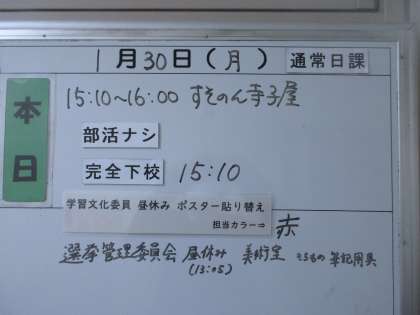 1月30日(月) 通常日課
本日
15:10~16:00 すそのん寺子屋
部活ナシ
完全下校 15:10
学習文化委員 昼休み ポスター貼り替え
担当カラー⇒ 赤
選挙管理委員会 昼休み 美術室 筆記用具
(13:05)